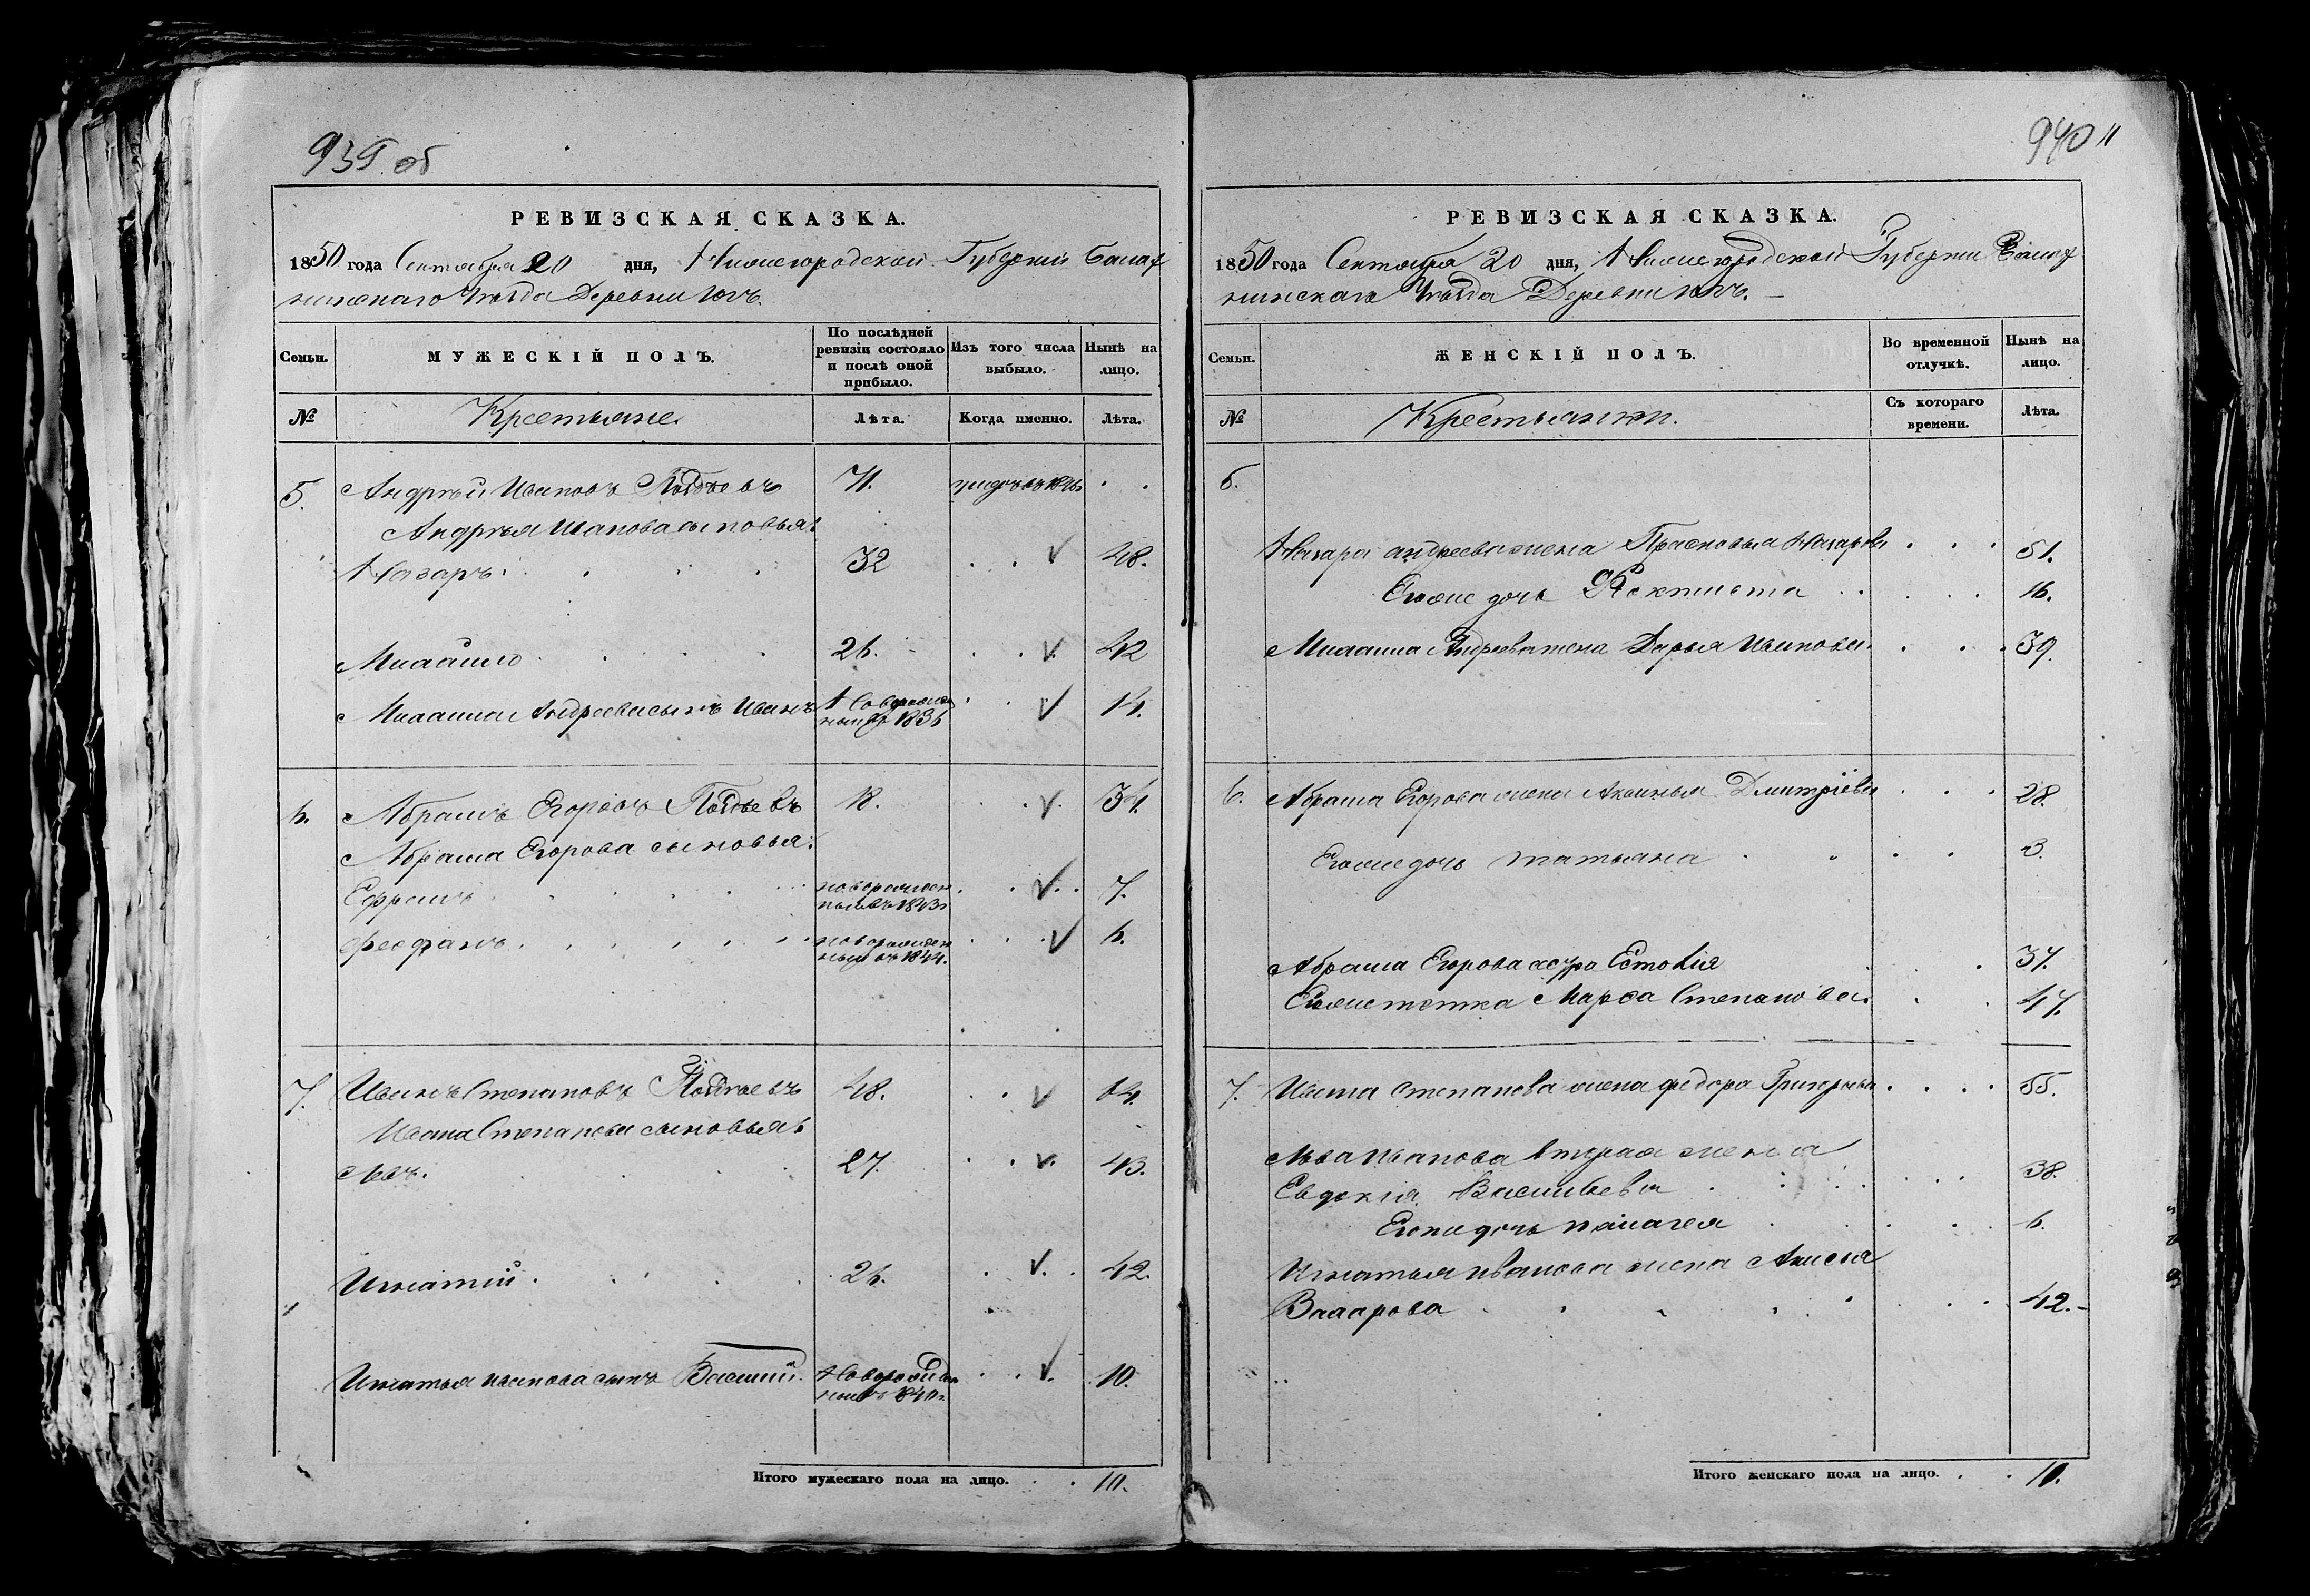 939 об
РЕВИЗСКАЯ СКАЗКА.
1850 года Сентября 20 дня, Нижегородской Губерніи Балах
нинскаго Уѣзда Деревни
Семьи.
МУЖЕСКІЙ ПОЛЪ.
По послѣдней ревизіи состояло и послѣ оной прибыло.
Изъ того числа выбыло.
Нынѣ на лицо.
№
Крестьяне.
Лѣта.
Когда именно.
Лѣта.
5. Андрѣй Ивановъ 71.
Андрѣя Иванова сыновья:
Назаръ 32 48.
Михайло 26. 42
Михайла Андреева сынъ Иванъ Новорожден ный въ 1836 14.
6. Абрамъ Егоровъ 18. 34.
Абрама Егорова сыновья:
Ефремъ новорожден ный въ 1843 7.
Феофанъ новорожден ный въ 1844. 6.
7. Иванъ Степановъ 48. 64.
Ивана Степанова сыновья
Левъ. 27. 43.
Игнатій 26. 42.
Игнатья Иванова сынъ Василій Новорожден ный въ 1840 10.
Итого мужескаго пола на лицо. 10.
940
РЕВИЗСКАЯ СКАЗКА.
1850 года Сентября 20 дня, Нижегородской Губерніи Балах
нинскаго Уѣзда Деревни
Семьи.
ЖЕНСКІЙ ПОЛЪ.
Во временной отлучкѣ.
Нынѣ на лицо.
№
Крестьянки.
Съ котораго времени.
Лѣта.
5.
Назара андреева жена Прасковья Назарова 51.
Егоже дочь Фектиста 16.
Михайла Андреева жена Дарья Иванова. 39.
6. Абрама Егорова жена Аксинья Дмитріева 28.
Егоже дочь татьяна 3.
Абрама Егорова сестра 37.
Егоже тетка Марфа Степанова 47.
7. Ивана Степанова жена федора Григорьева 55.
Льва Иванова вторая жена
Евдокія Васильева 38.
Егоже дочь пелагея 6.
Игнатья иванова жена Анисья
Захарова 42.
Итого женскаго пола на лицо. 10.